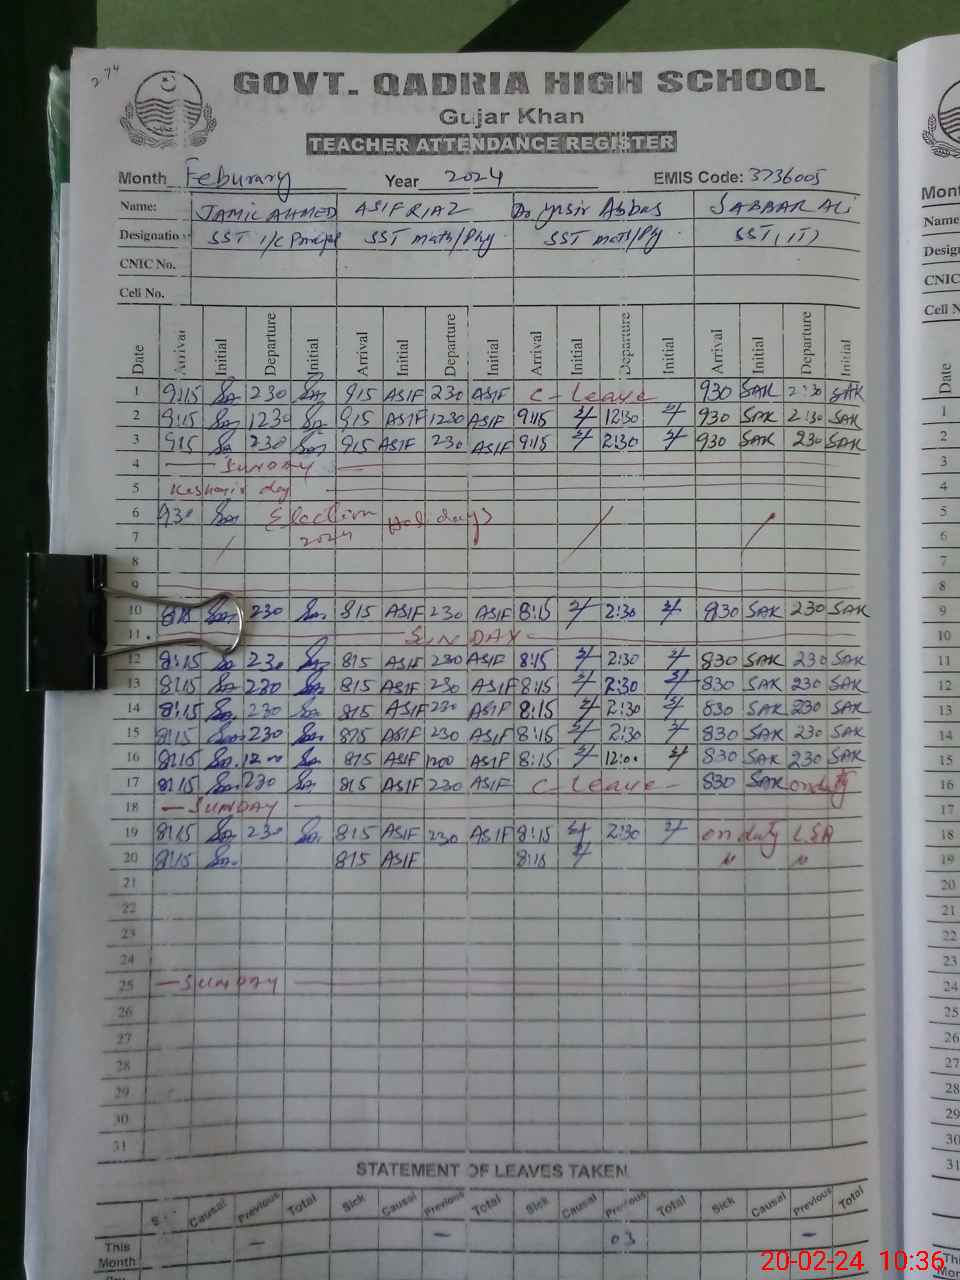 274
GOVT. QADRIA HIGH SCHOOL
Gujar Khan
TEACHER ATTENDANCE REGISTER
Month Feburary Year 2024 EMIS Code: 3736005
Name: JAMIL AHMED ASIF RIAZ Dr Yasir Abbas JABBAR ALI
Designation SST I/C Principal SST math/Phy SST math/Phy SST (IT)
CNIC No.
Cell No.
Date Arrival Initial Departure Initial Arrival Initial Departure Initial Arrival Initial Departure Initial Arrival Initial Departure Initial
1 9:15 230 915 ASIF 230 ASIF C-Leave 930 SAK 2:30 SAK
2 9:15 1230 915 ASIF 1230 ASIF 9:15 12:30 930 SAK 2:30 SAK
3 9:15 230 915 ASIF 230 ASIF 9:15 2:30 930 SAK 230 SAK
4 SUNDAY
5 Kashmir day
6 930 Election Holidays
7 2024
8
9
10 8:15 230 815 ASIF 230 ASIF 8:15 2:30 830 SAK 230 SAK
11 SUNDAY
12 8:15 230 815 ASIF 230 ASIF 8:15 2:30 830 SAK 230 SAK
13 8:15 230 815 ASIF 230 ASIF 8:15 2:30 830 SAK 230 SAK
14 8:15 230 815 ASIF 230 ASIF 8:15 2:30 830 SAK 230 SAK
15 8:15 230 815 ASIF 230 ASIF 8:15 2:30 830 SAK 230 SAK
16 8:15 1200 815 ASIF 1200 ASIF 8:15 12:00 830 SAK 230 SAK
17 8:15 230 815 ASIF 230 ASIF C-Leave 830 SAK on duty
18 SUNDAY
19 8:15 230 815 ASIF 230 ASIF 8:15 2:30 on duty LSA
20 8:15 815 ASIF 8:15 " "
21
22
23
24
25 SUNDAY
26
27
28
29
30
31
STATEMENT OF LEAVES TAKEN
Causal Previous Total Sick Causal Previous Total Sick Causal Previous Total Sick Causal Previous Total
This Month - - 03 -
20-02-24 10:36
Mont
Name
Design
CNIC
Cell N
Date
1
2
3
4
5
6
7
8
9
10
11
12
13
14
15
16
17
18
19
20
21
22
23
24
25
26
27
28
29
30
31